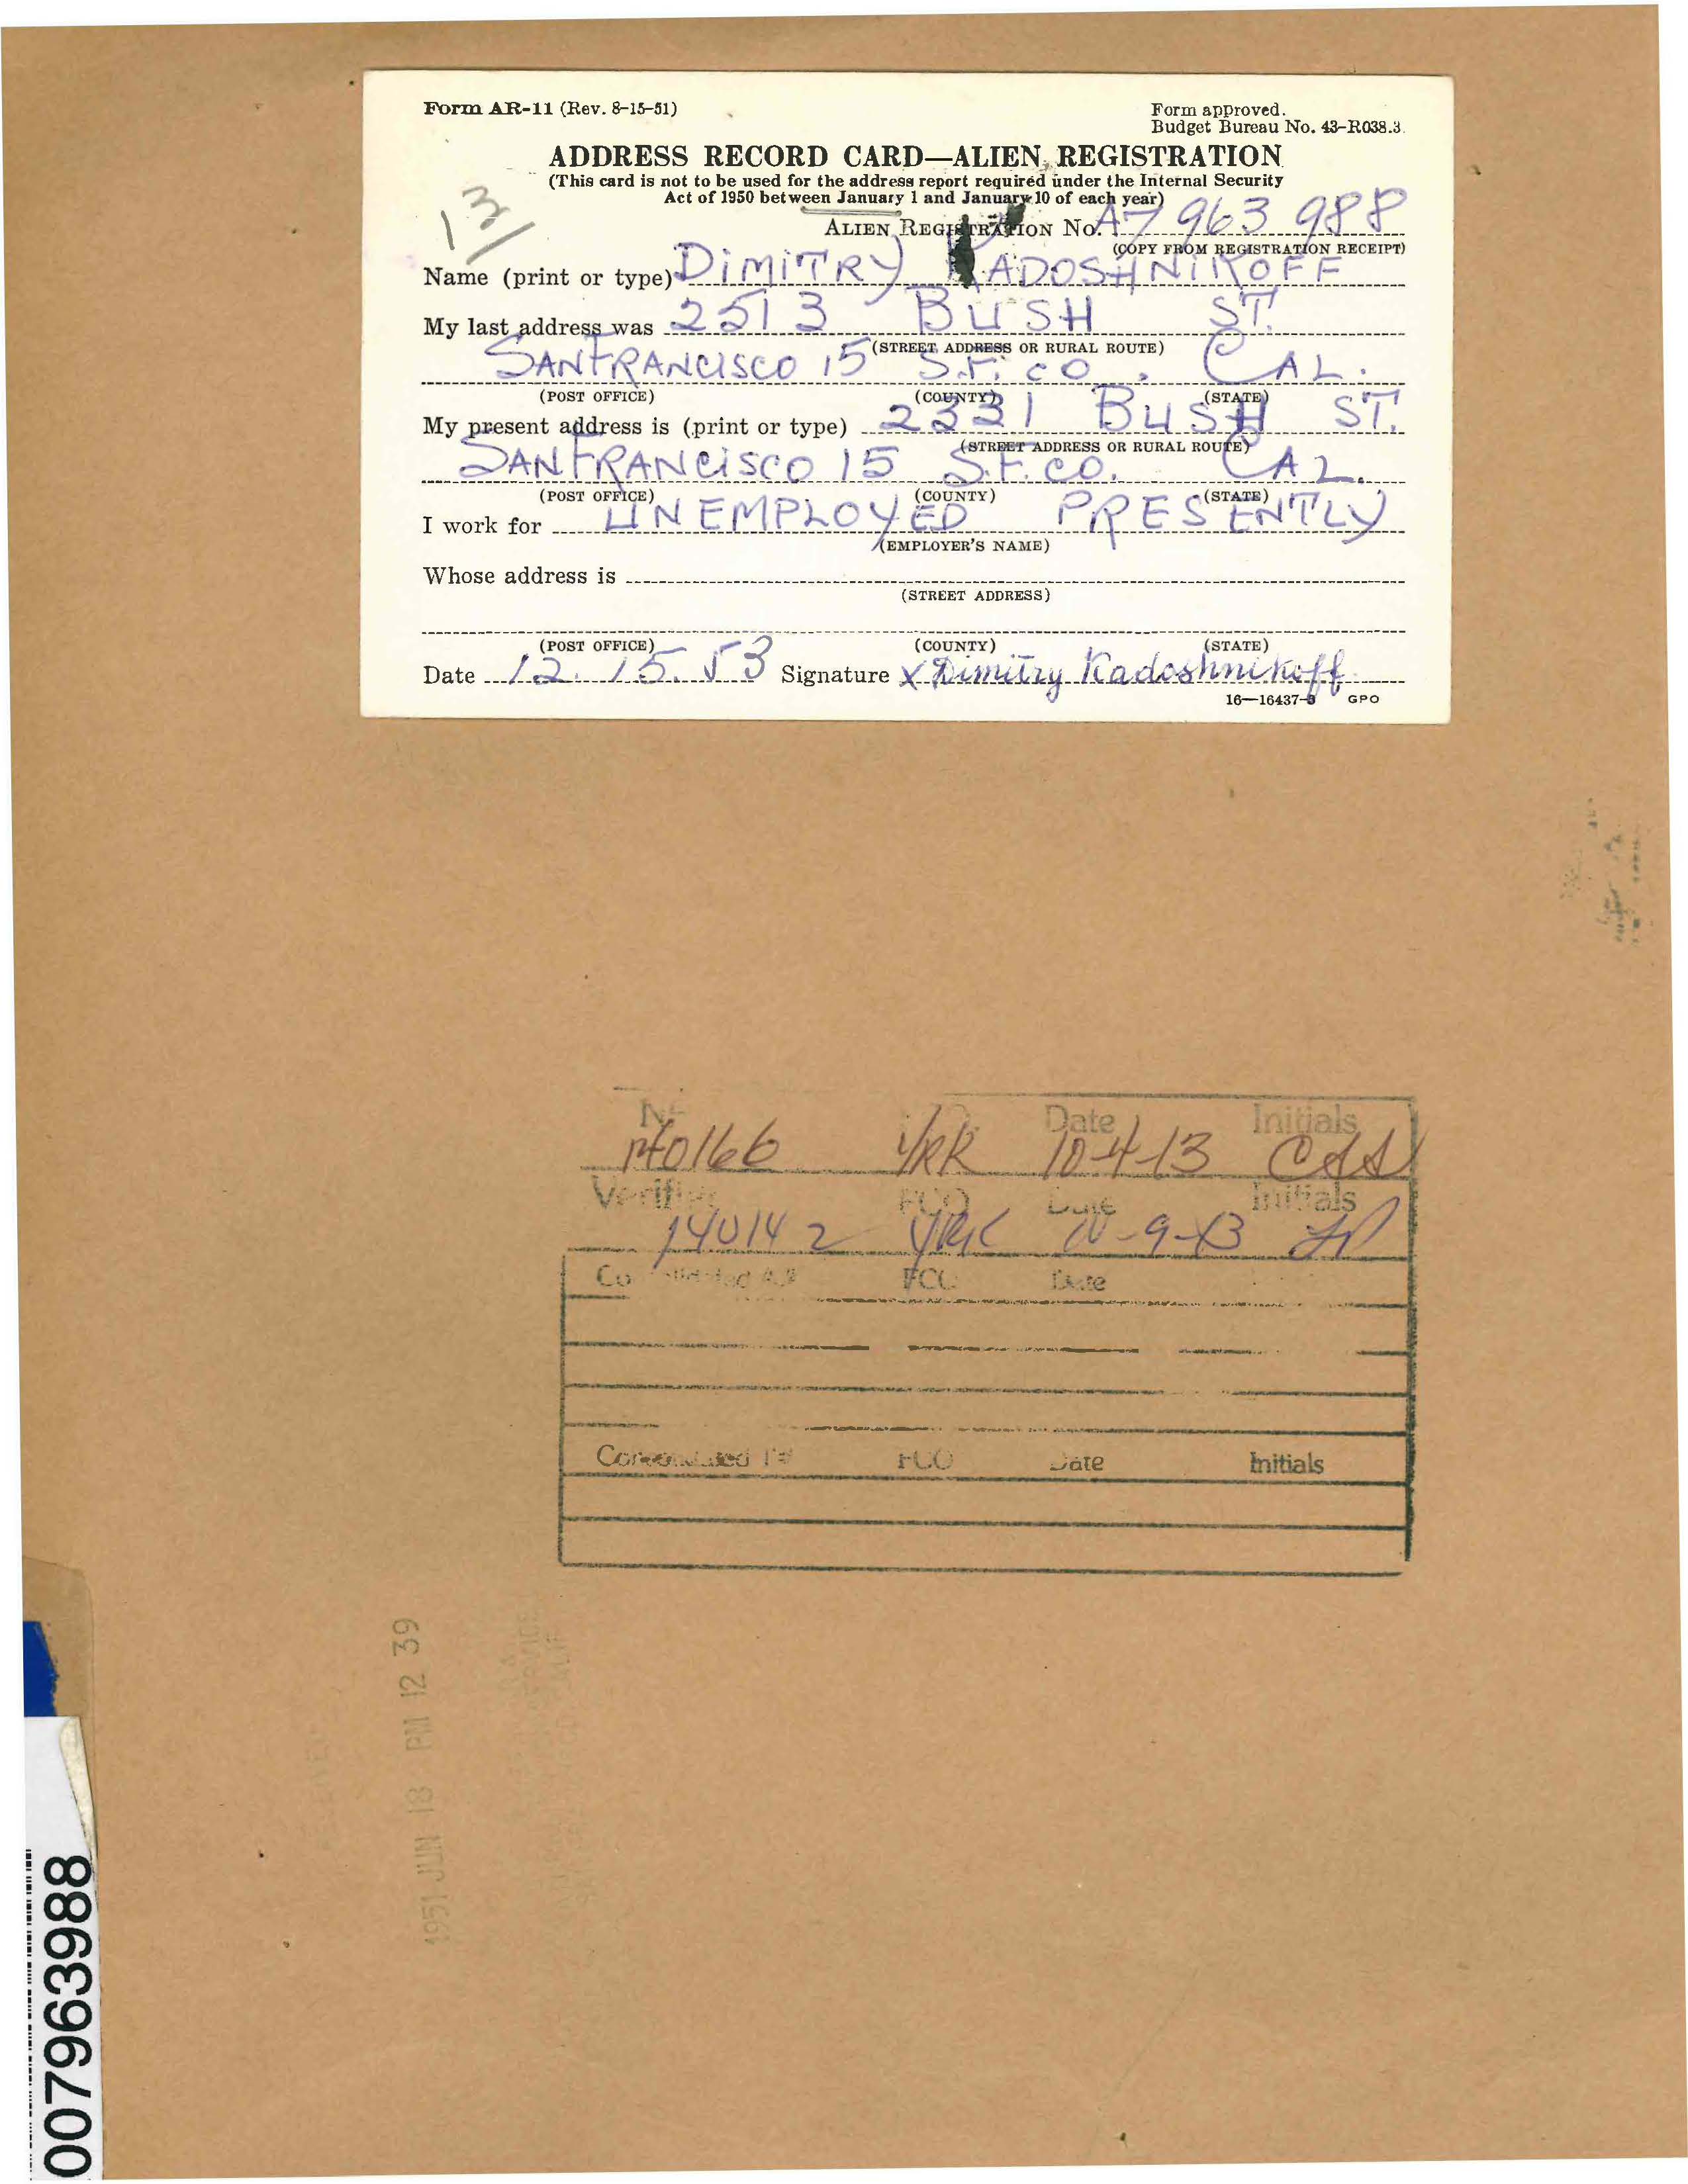 Form AR-11 (Rev. 8-15-51)
Form approved.
Budget Bureau No. 43-R038.3.
ADDRESS RECORD CARD—ALIEN REGISTRATION
(This card is not to be used for the address report required under the Internal Security
Act of 1950 between January 1 and January 10 of each year)
13
ALIEN REGISTRATION No. A7 963 988
(COPY FROM REGISTRATION RECEIPT)
Name (print or type) DIMITRY KADOSHNIKOFF
My last address was 2513 BUSH ST.
(STREET ADDRESS OR RURAL ROUTE)
SAN FRANCISCO 15 S.F. CO. CAL.
(POST OFFICE) (COUNTY) (STATE)
My present address is (print or type) 2331 BUSH ST.
(STREET ADDRESS OR RURAL ROUTE)
SAN FRANCISCO 15 S.F. CO. CAL.
(POST OFFICE) (COUNTY) (STATE)
I work for UNEMPLOYED PRESENTLY
(EMPLOYER'S NAME)
Whose address is
(STREET ADDRESS)
(POST OFFICE) (COUNTY) (STATE)
Date 12. 15. 53 Signature X Dimitry Kadoshnikoff
16—16437-3 GPO
Date Initials
10-4-13
FCO Date Initials
140142
FCO Date
FCO Date Initials
1951 JUN 18 PM 12 39
007963988